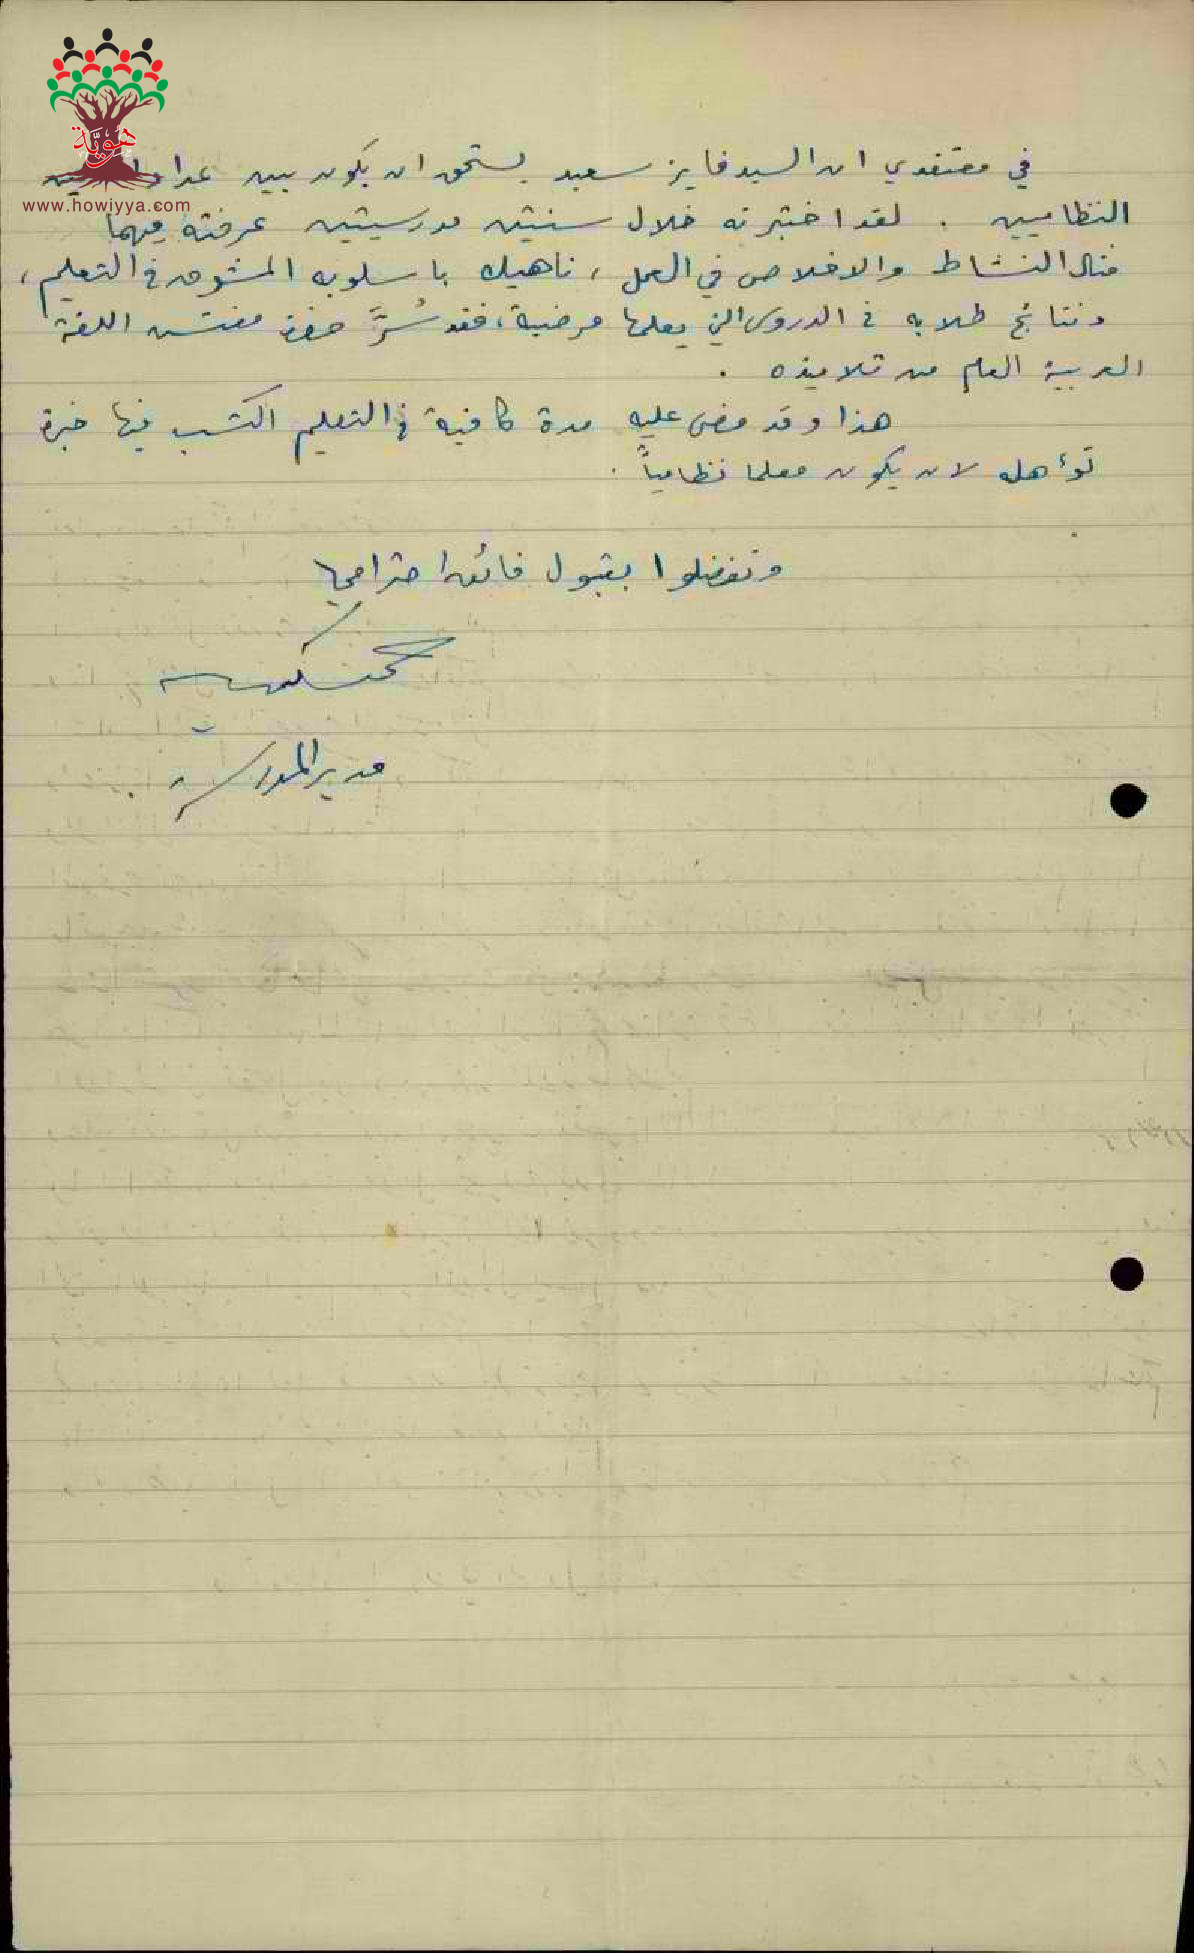 هوية
www.howiyya.com
في معتقدي ان السيد فايز سعيد يستحق ان يكون بين عداد
النظاميين . لقد اختبرته خلال سنتين مدرسيتين عرفته فيهما
مثال النشاط والاخلاص في العمل ، ناهيك باسلوبه المشوق في التعليم ،
ونتائج طلابه في الدروس التي يعلمها مرضية ، فقد سُرَّ حضرة مفتش اللغة
العربية العام من تلاميذه .
هذا وقد مضى عليه مدة كافية في التعليم اكتسب فيها خبرة
تؤهله لان يكون معلما نظامياً .
وتفضلوا بقبول فائق احترامي
مدير المدرسة .